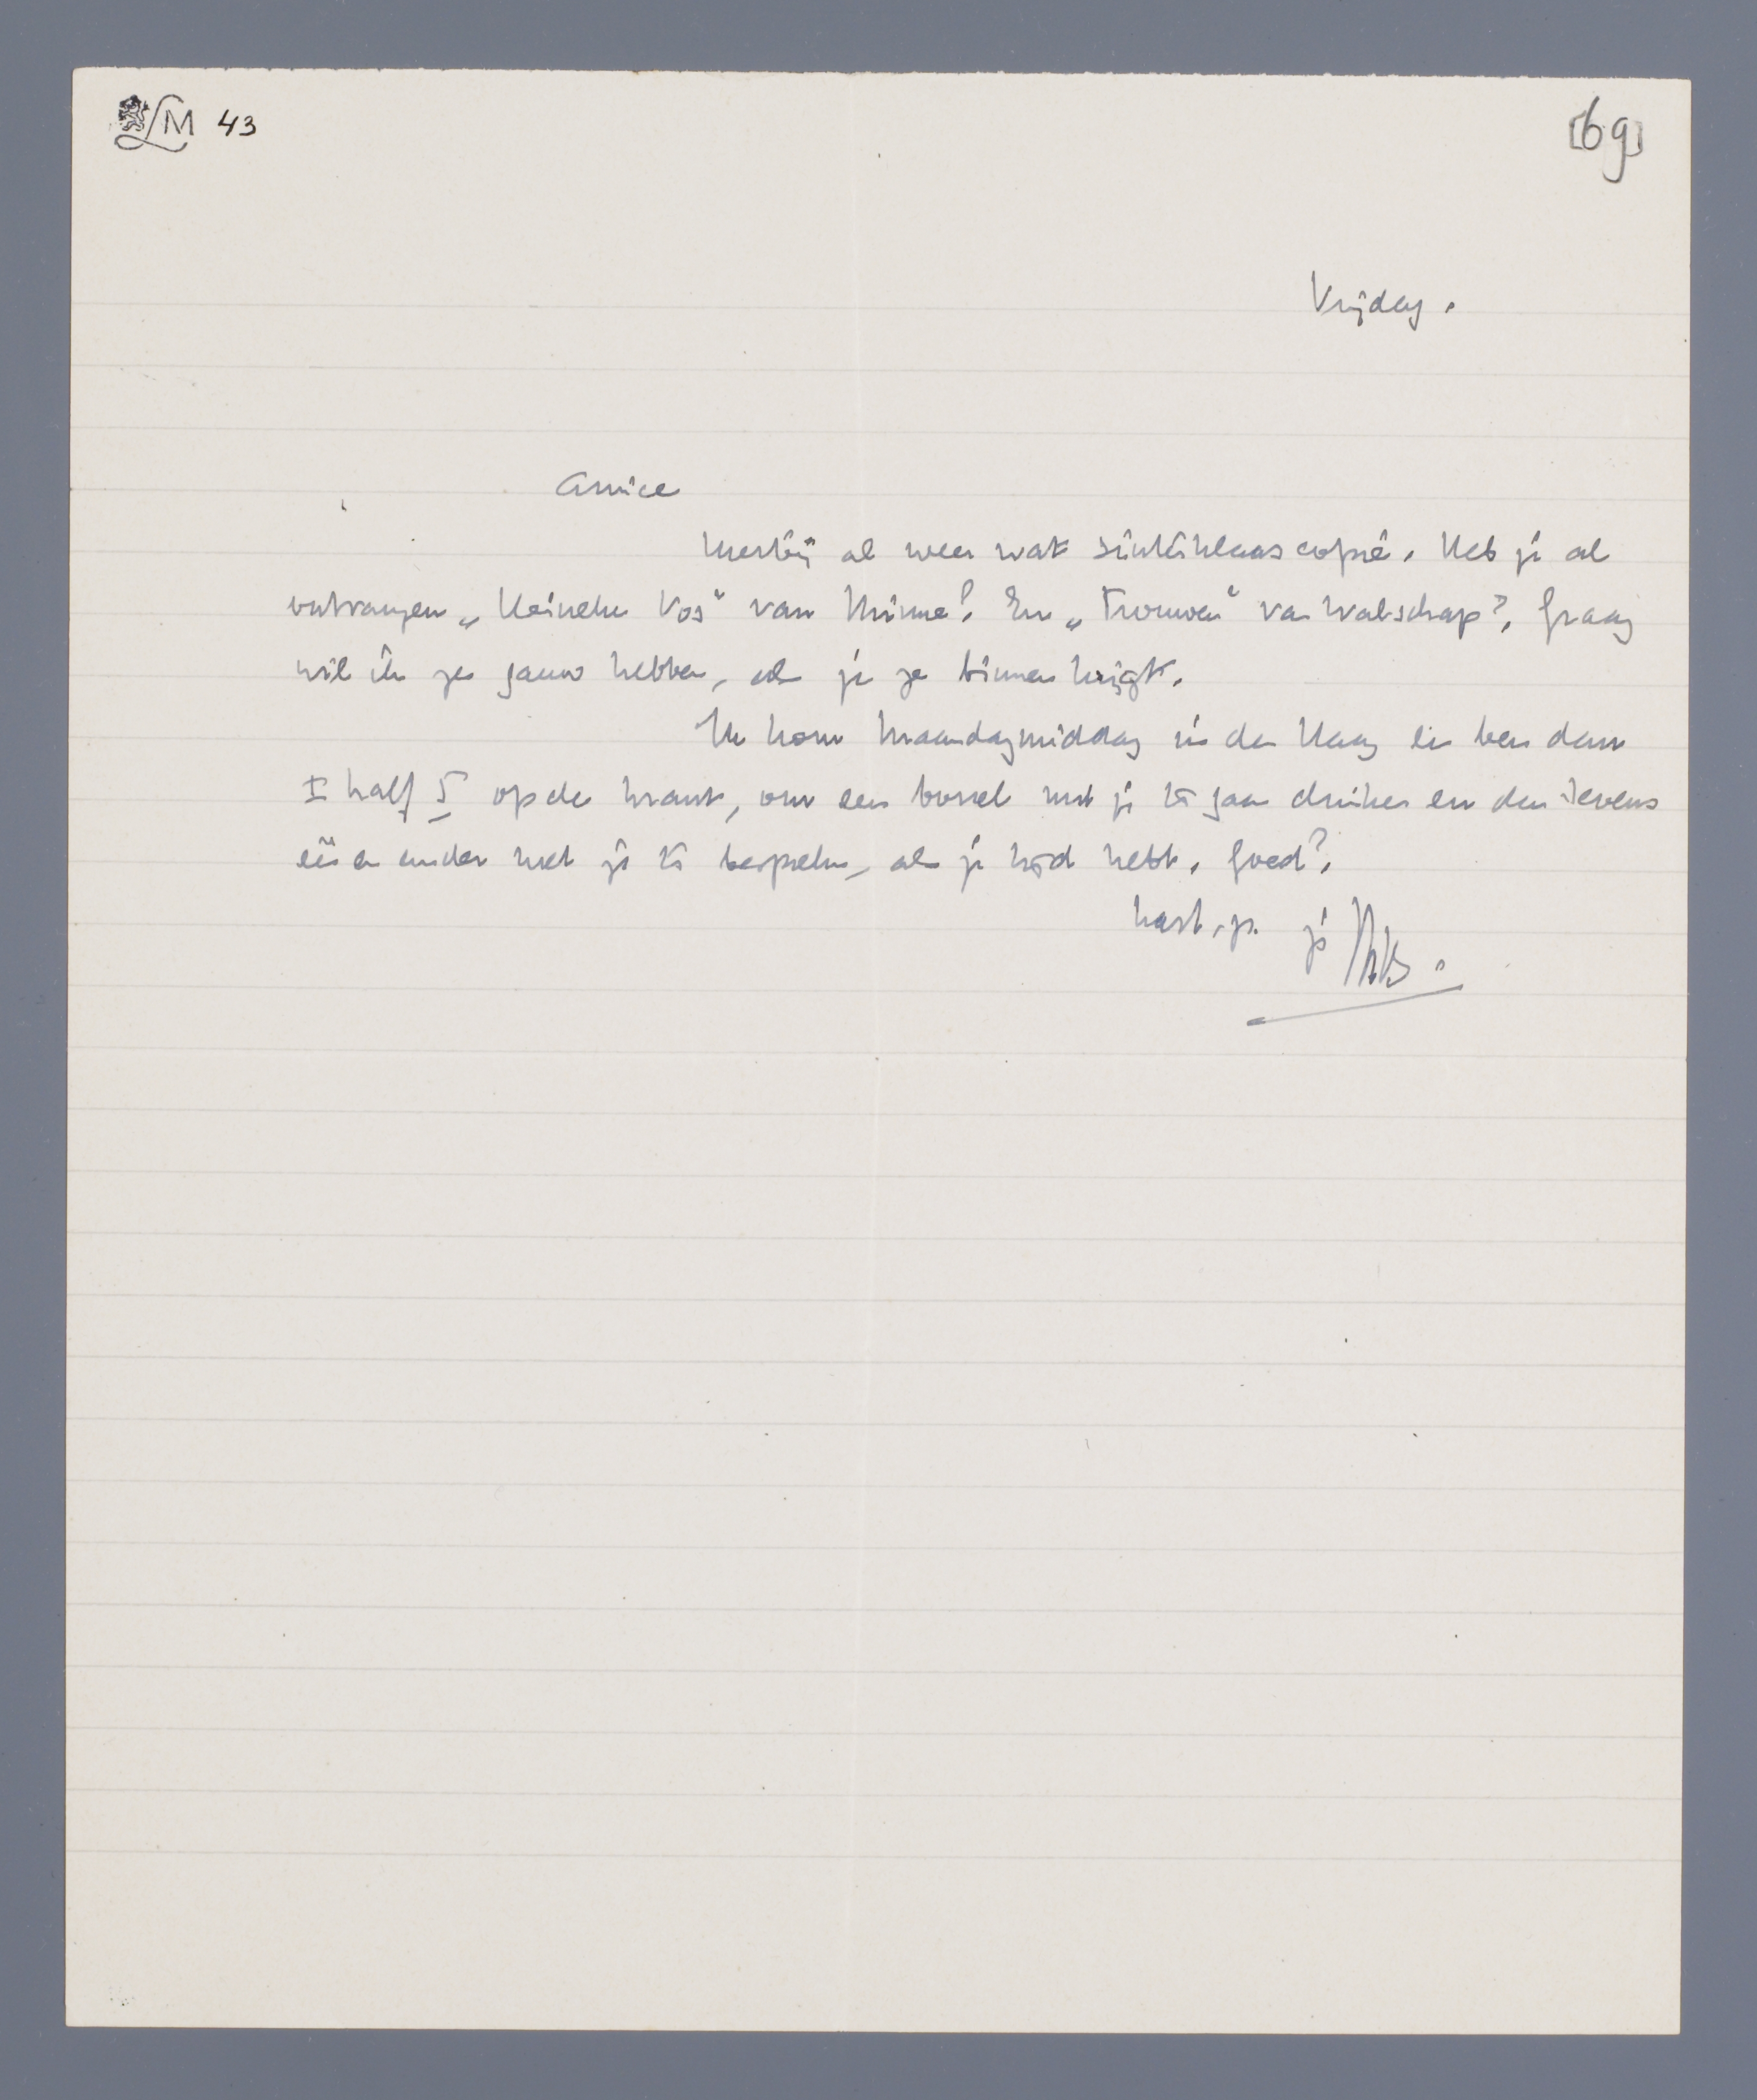 LM 43
[69]
Vrijdag.
Amice
Hierbij al weer wat sinterklaascopie. Heb je al
ontvangen „Heineke Vos" van Minne? En „Trouwen" van Walschap? Graag
wil ik ze gauw hebben, als je ze binnen krijgt.
Ik kom Maandagmiddag in den Haag en ben dan
± half 5 op de krant, om een borrel met je te gaan drinken en dan tevens
een en ander met je te bespreken, als je tijd hebt. Goed?
hart. gr. je